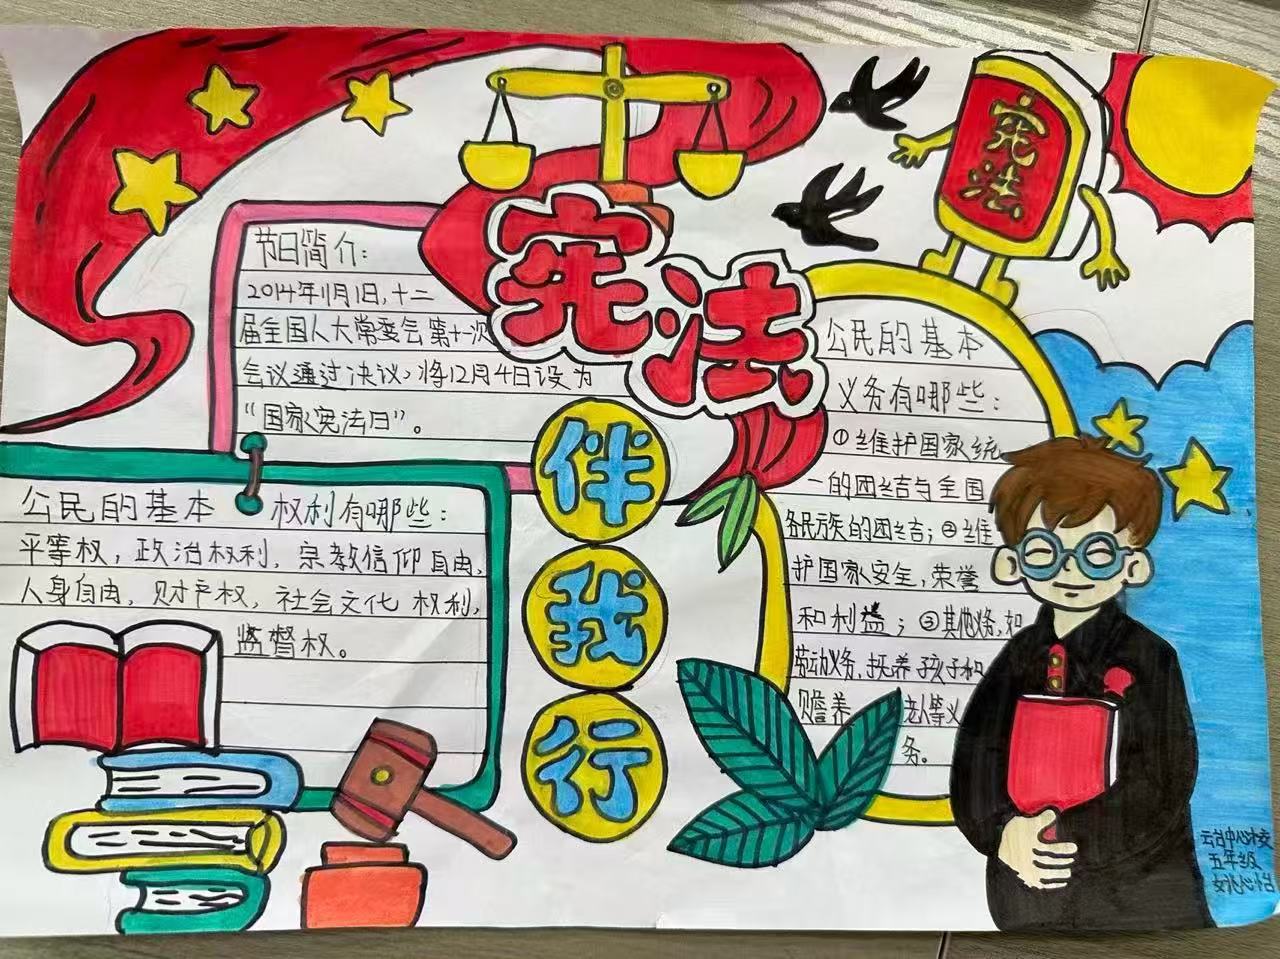 宪法
宪法
伴
我
行
节日简介：
2014年11月1日，十二
届全国人大常委会第十一次
会议通过决议，将12月4日设为
“国家宪法日”。
公民的基本 权利有哪些：
平等权，政治权利，宗教信仰自由，
人身自由，财产权，社会文化权利，
监督权。
公民的基本
义务有哪些：
①维护国家统
一的团结与全国
各民族的团结；②维
护国家安全，荣誉
和利益；③其他义务，如
劳动义务，抚养孩子和
赡养 老人等义
务。
云台中心校
五年级
姚心怡